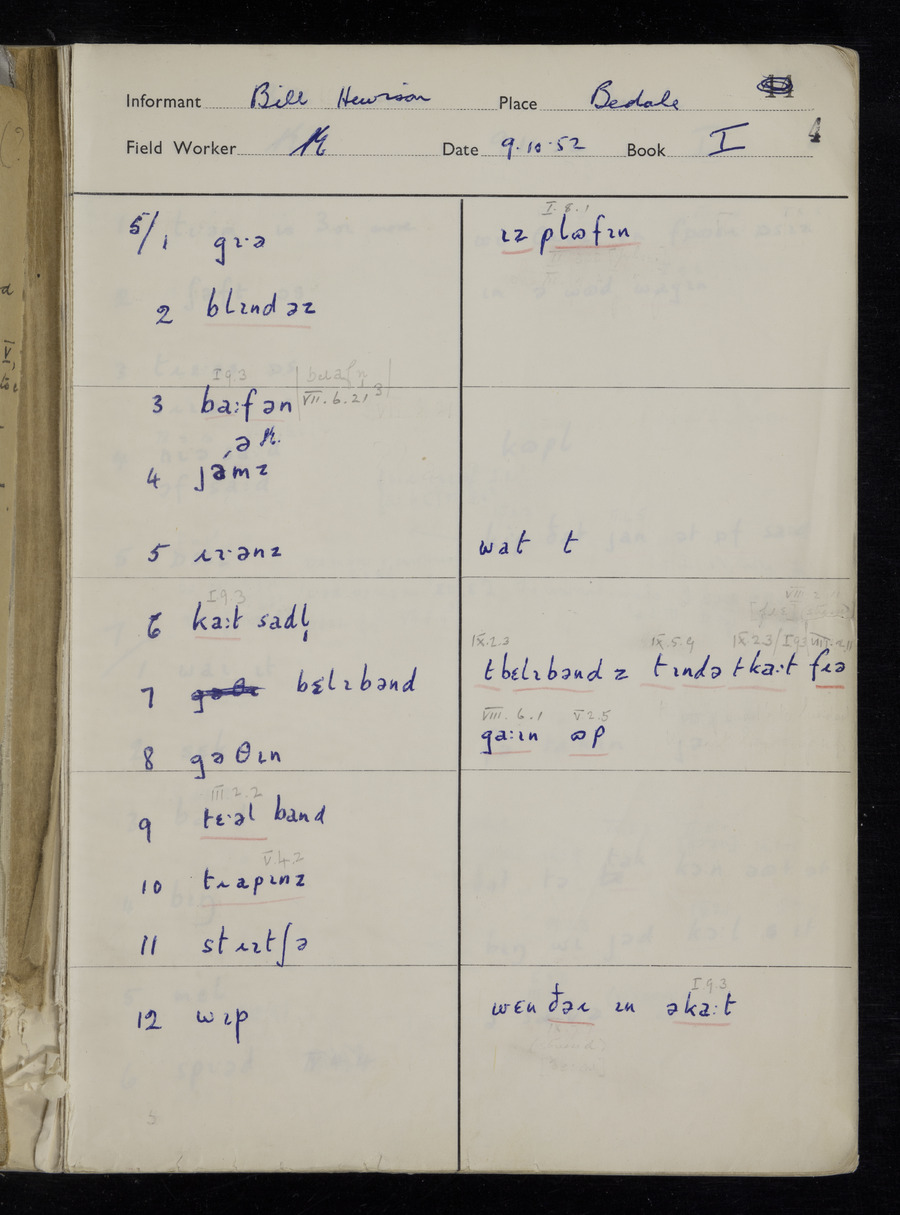 Informant Bill Hewison Place Bedale
4
Field Worker Date 9.10.52 Book I
I.8.1
5/1 gɪ·ə ɪz plɷfɪn
2 blɪndəz
I 9.3
3 ba:fən VII.6.21 3
ə
4 jəmz
5 ɹɪ·ənz wat t
I 9.3
6 ka:t sadl̩
IX.2.3 IX.5.9 IX.2.3/I.9.3
7 bɛlɪbənd tbɛlɪbənd z tɪndə tka:t fɪə
VIII.6.1 V.2.5
8 gəθɪn ga:ɪn ɷp
III.2.2
9 tɛ·əl band
V.4.2
10 tɹapɪnz
11 stɹɪtʃə
I.9.3
12 wɪp wɛn ðəɪ ɪn əka:t